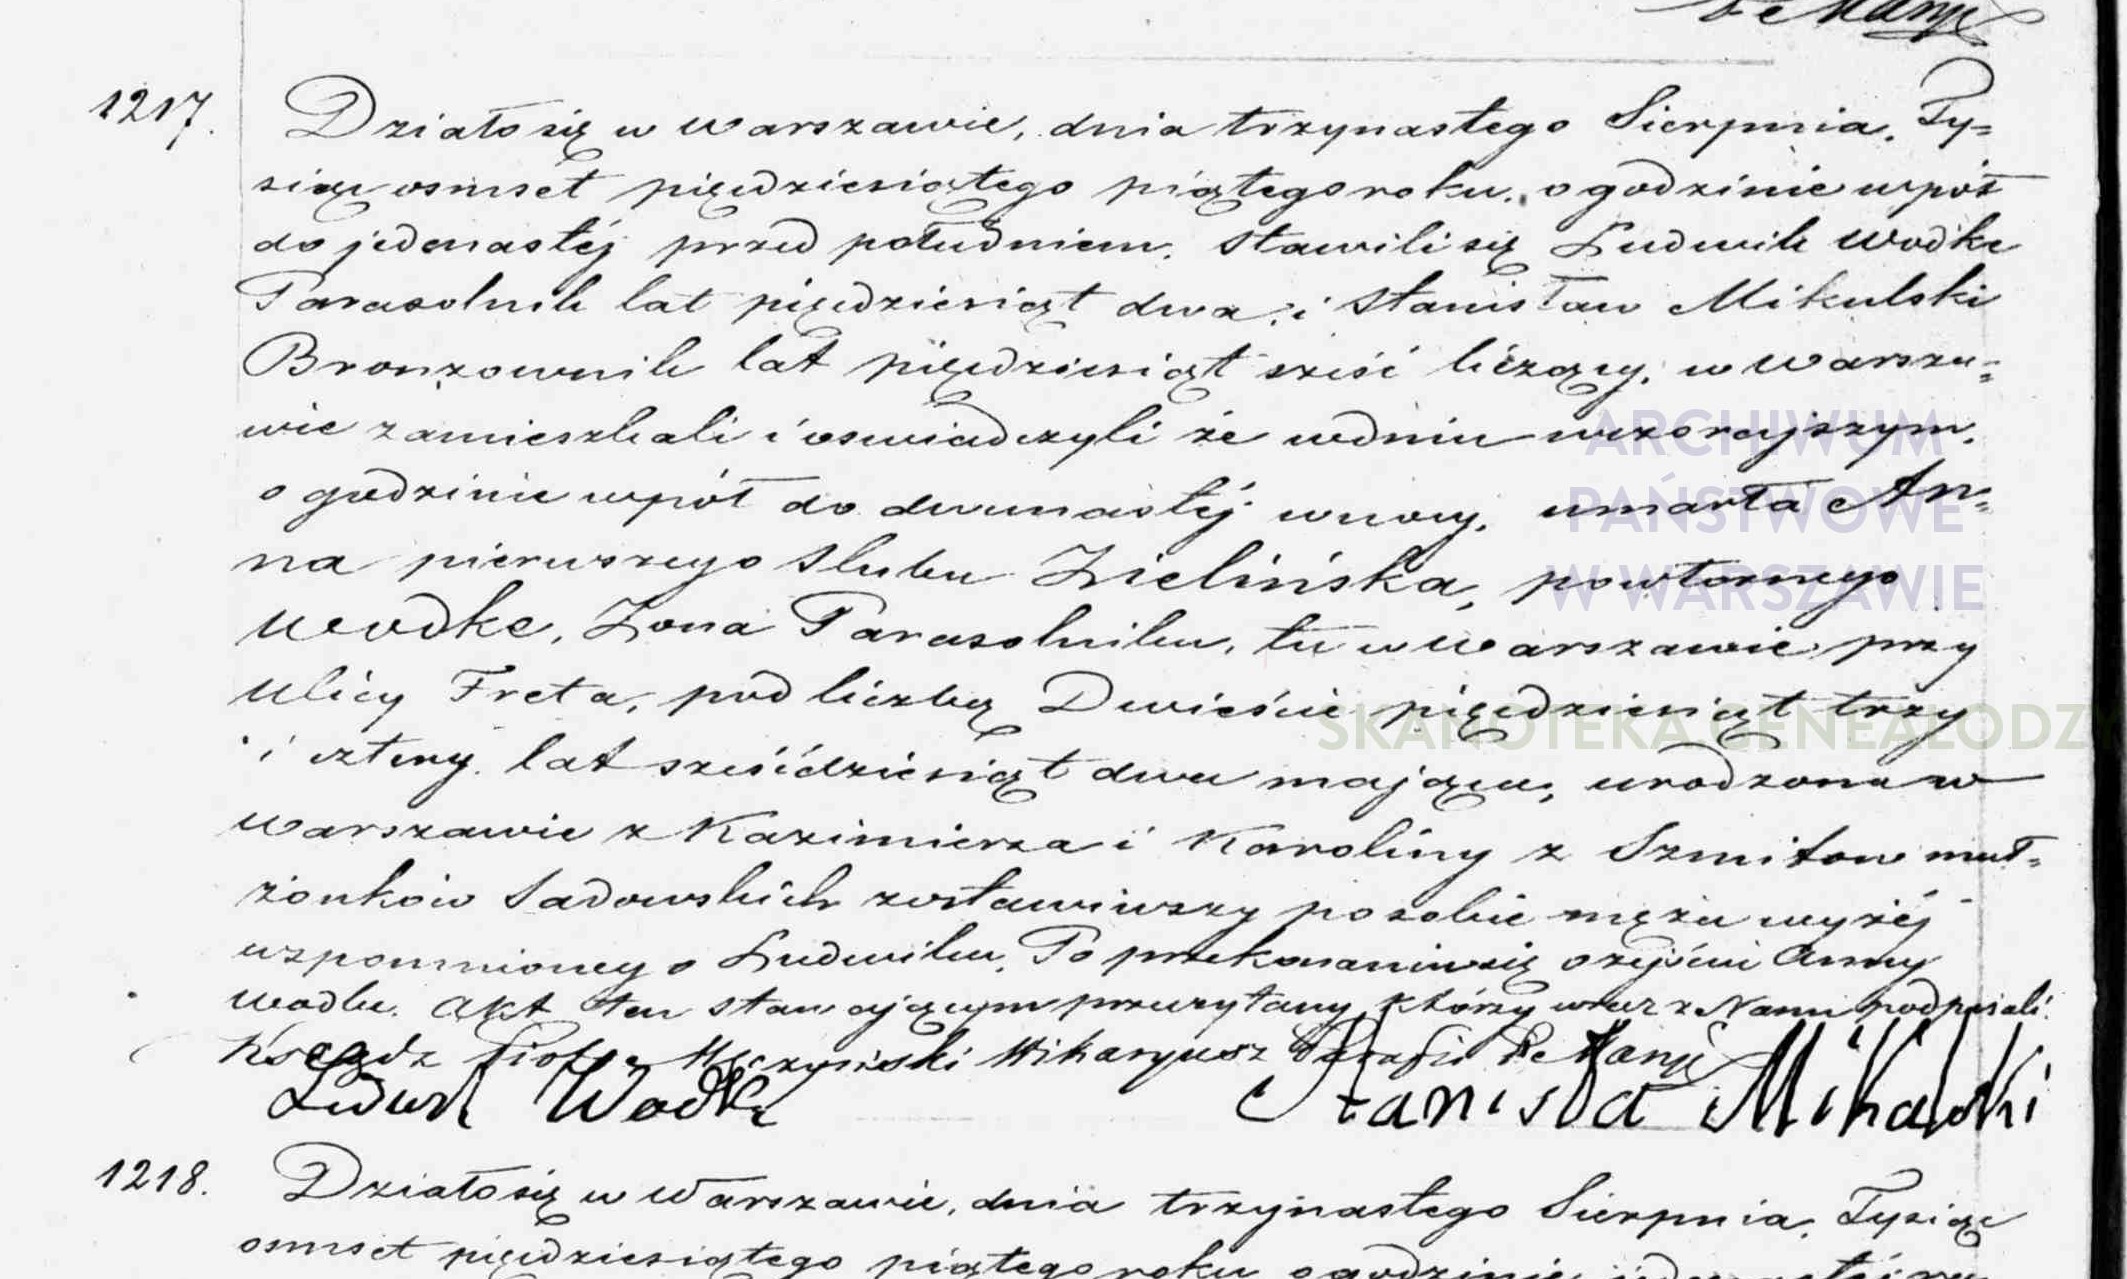 De Marye
1217.
Działo się w Warszawie, dnia trzynastego Sierpnia, Ty=
siąc osmset pięćdziesiątego piątego roku, o godzinie wpół
do jedenastéj przed południem, stawili się Ludwik Wodke
Parasolnik lat pięćdziesiąt dwa, i Stanisław Mikulski
Bronzownik lat pięćdziesiąt sześć liczący, w Warsza=
wie zamieszkali i oswiadczyli że wdniu wczorajszym,
o godzinie wpół do dwunastéj wnocy, umarła An=
na pierwszego slubu Zielińska, powtornego
Wodke, Żona Parasolnika, tu w Warszawie przy
Ulicy Freta, pod liczbą Dwieście pięćdziesiąt trzy
i cztery, lat sześćdziesiąt dwa mająca, urodzona w
Warszawie z Kazimierza i Karoliny z Szmitow mał=
żonków Sadowskich zostawiwszy po sobie męża wyżéj
wspomnionego Ludwika, Po przekonaniu się o zejściu Anny
Wodke. Akt ten stawającym przeczytany którzy wraz z Nami podpisali.
Ksiądz Piotr Wikaryusz Parafii De Marye
Ludwik Wodke Stanisła Mikulski
1218.
Działo się w Warszawie, dnia trzynastego Sierpnia, Tysiąc
osmset pięćdziesiątego piątego roku o godzinie
ARCHIWUM
PAŃSTWOWE
W WARSZAWIE
SKANOTEKA.GENEALODZY